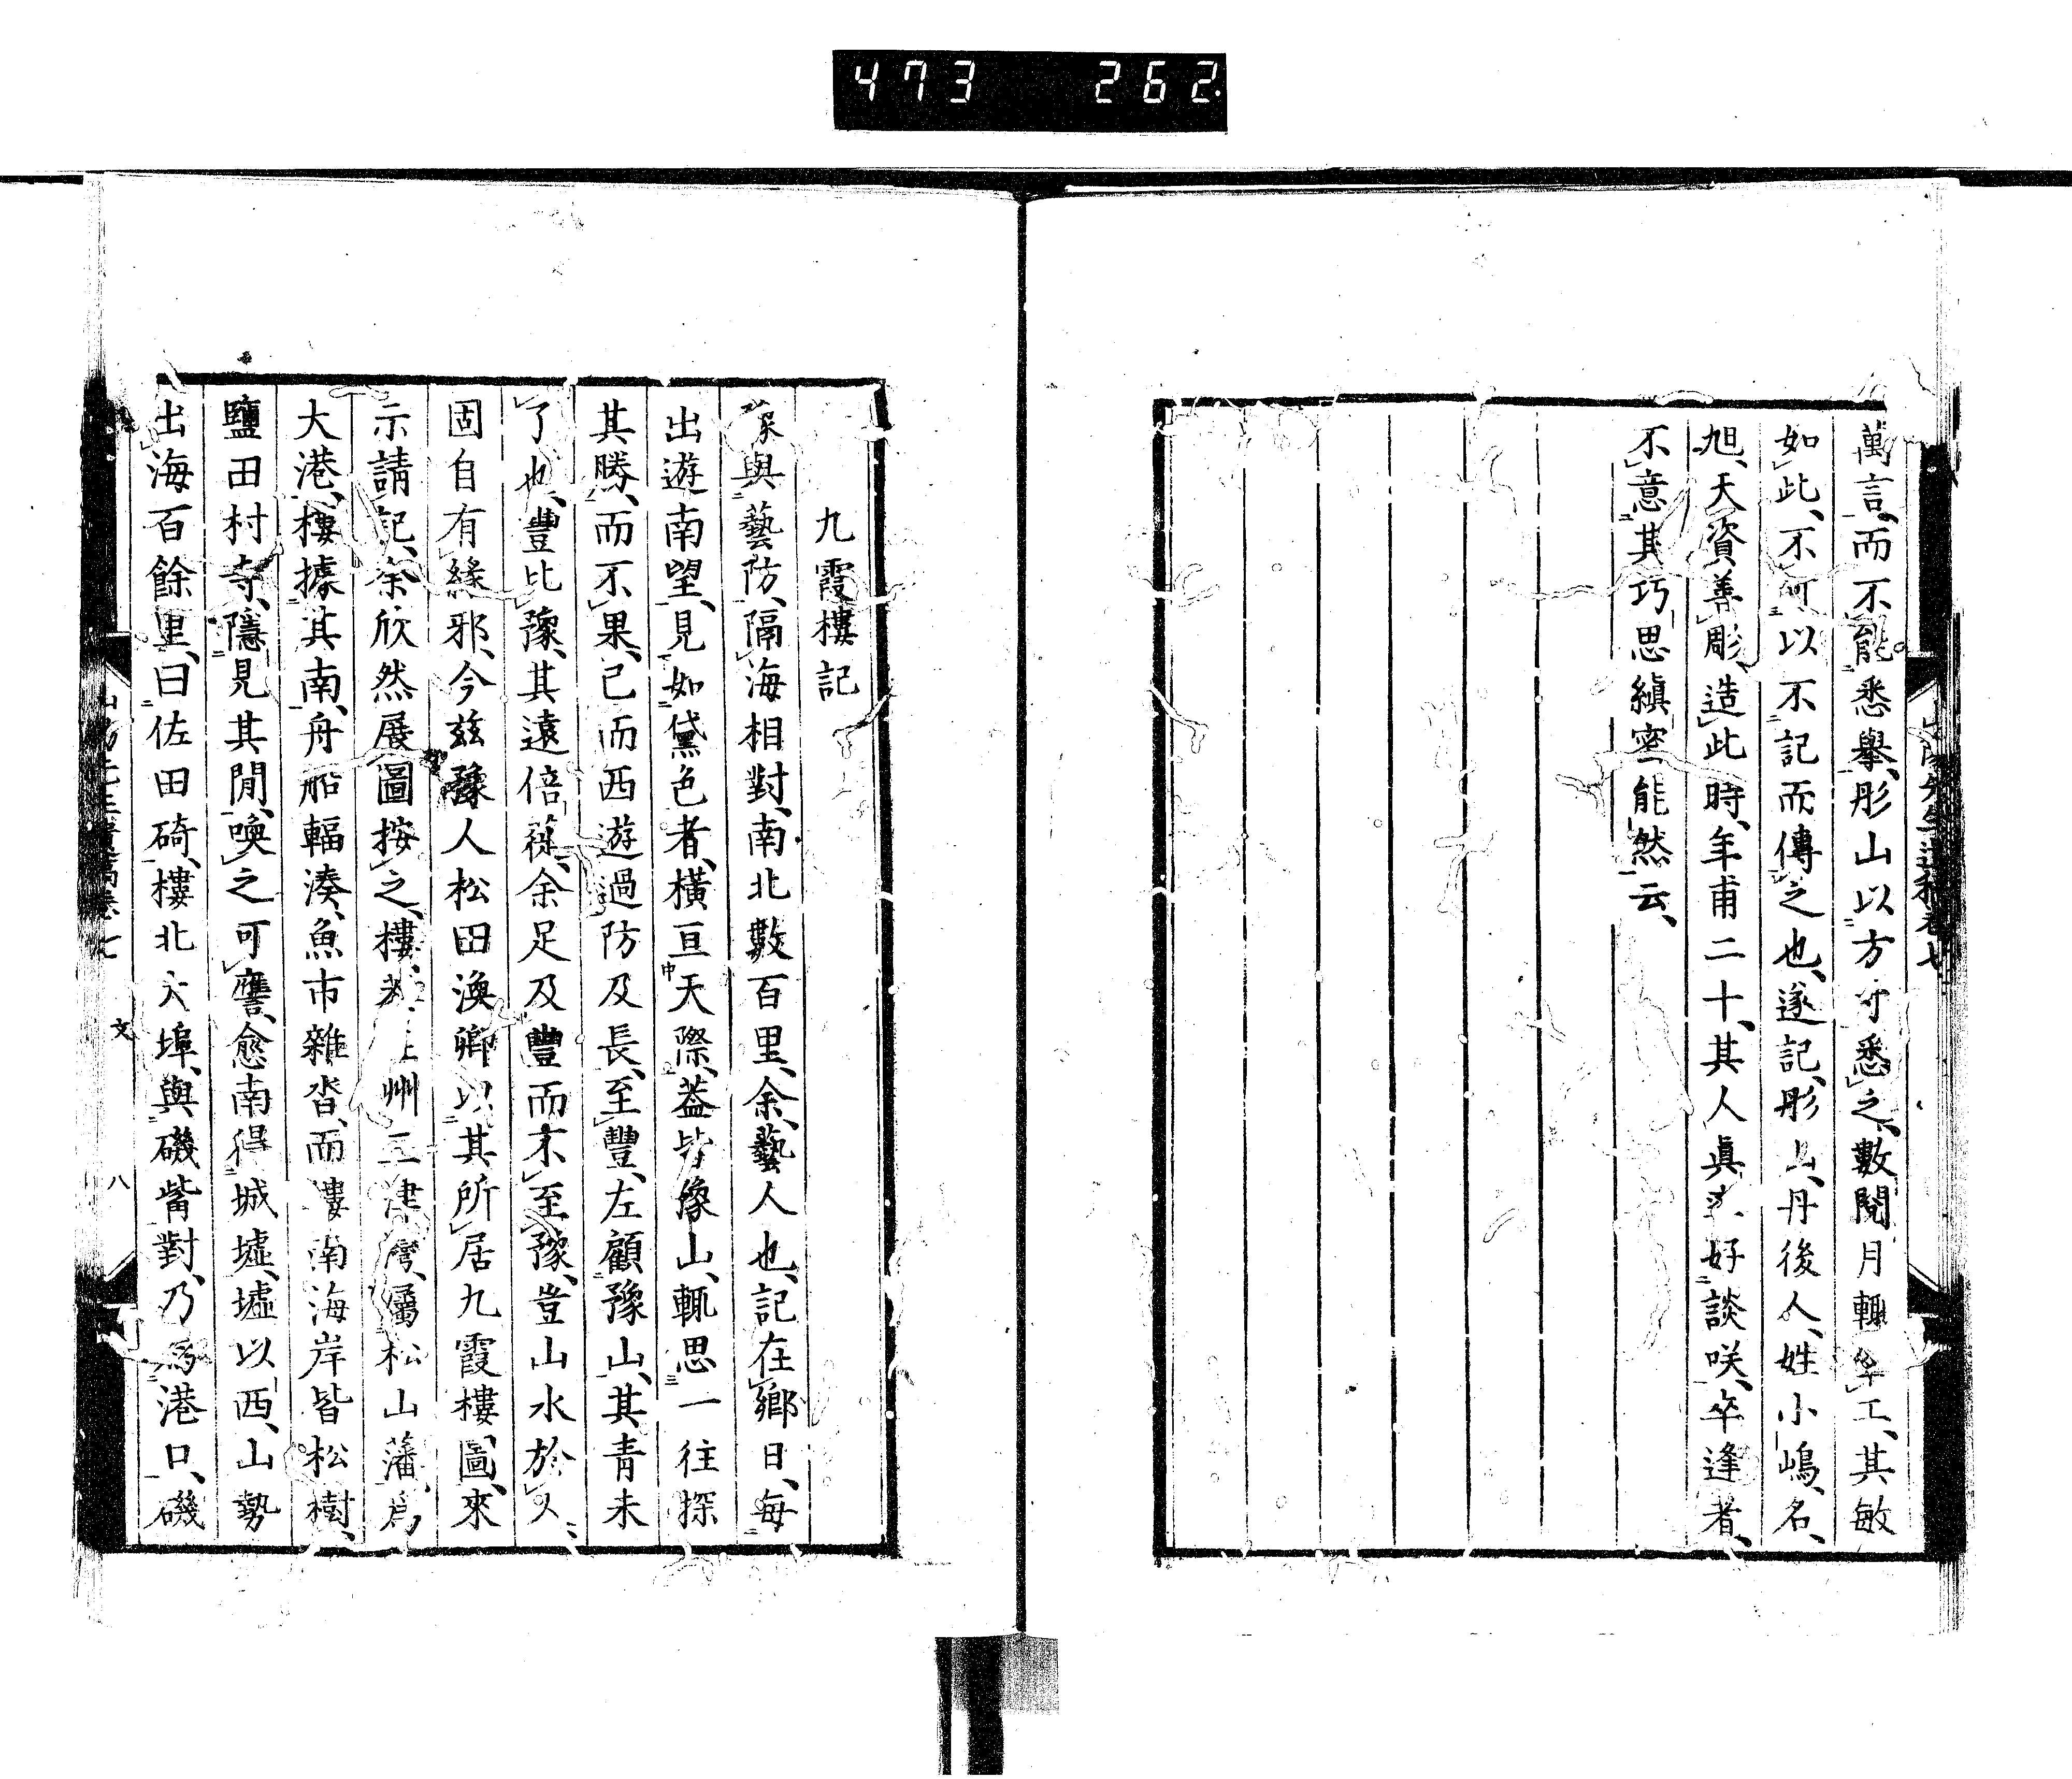 473 262
萬言、而不能悉擧、彤山以方寸悉之、數閱月輒卒工、其敏
如此、不可以不記而傳之也、遂記、彤山、丹後人、姓小嶋、名
旭、天資善彫、造此時、年甫二十、其人眞率好談咲、卒逢者、
不意其巧思縝密能然云、
山陽先生遺稿卷七
九霞樓記
豫與藝防、隔海相對、南北數百里、余藝人也、記在鄕日、每
出遊南望、見如黛色者、橫亘天際、蓋皆豫山、輒思一往探
其勝、而不果、已而西遊過防及長、至豐、左顧豫山、其青未
了也、豐比豫、其遠倍蓰、余足及豐而不至豫、豈山水於人
固自有緣邪、今玆豫人松田渙卿以其所居九霞樓圖、來
示請記、余欣然展圖按之、樓州三津灣、屬松山藩、爲
大港、樓據其南、舟船輻湊、魚市雜沓、而樓南海岸皆松樹、
鹽田村寺、隱見其閒、喚之可譍、愈南得城墟、墟以西、山勢
出海百餘里、曰佐田碕、樓北大埠、與磯觜對、乃爲港口、磯
山陽先生遺稿卷七 文 八